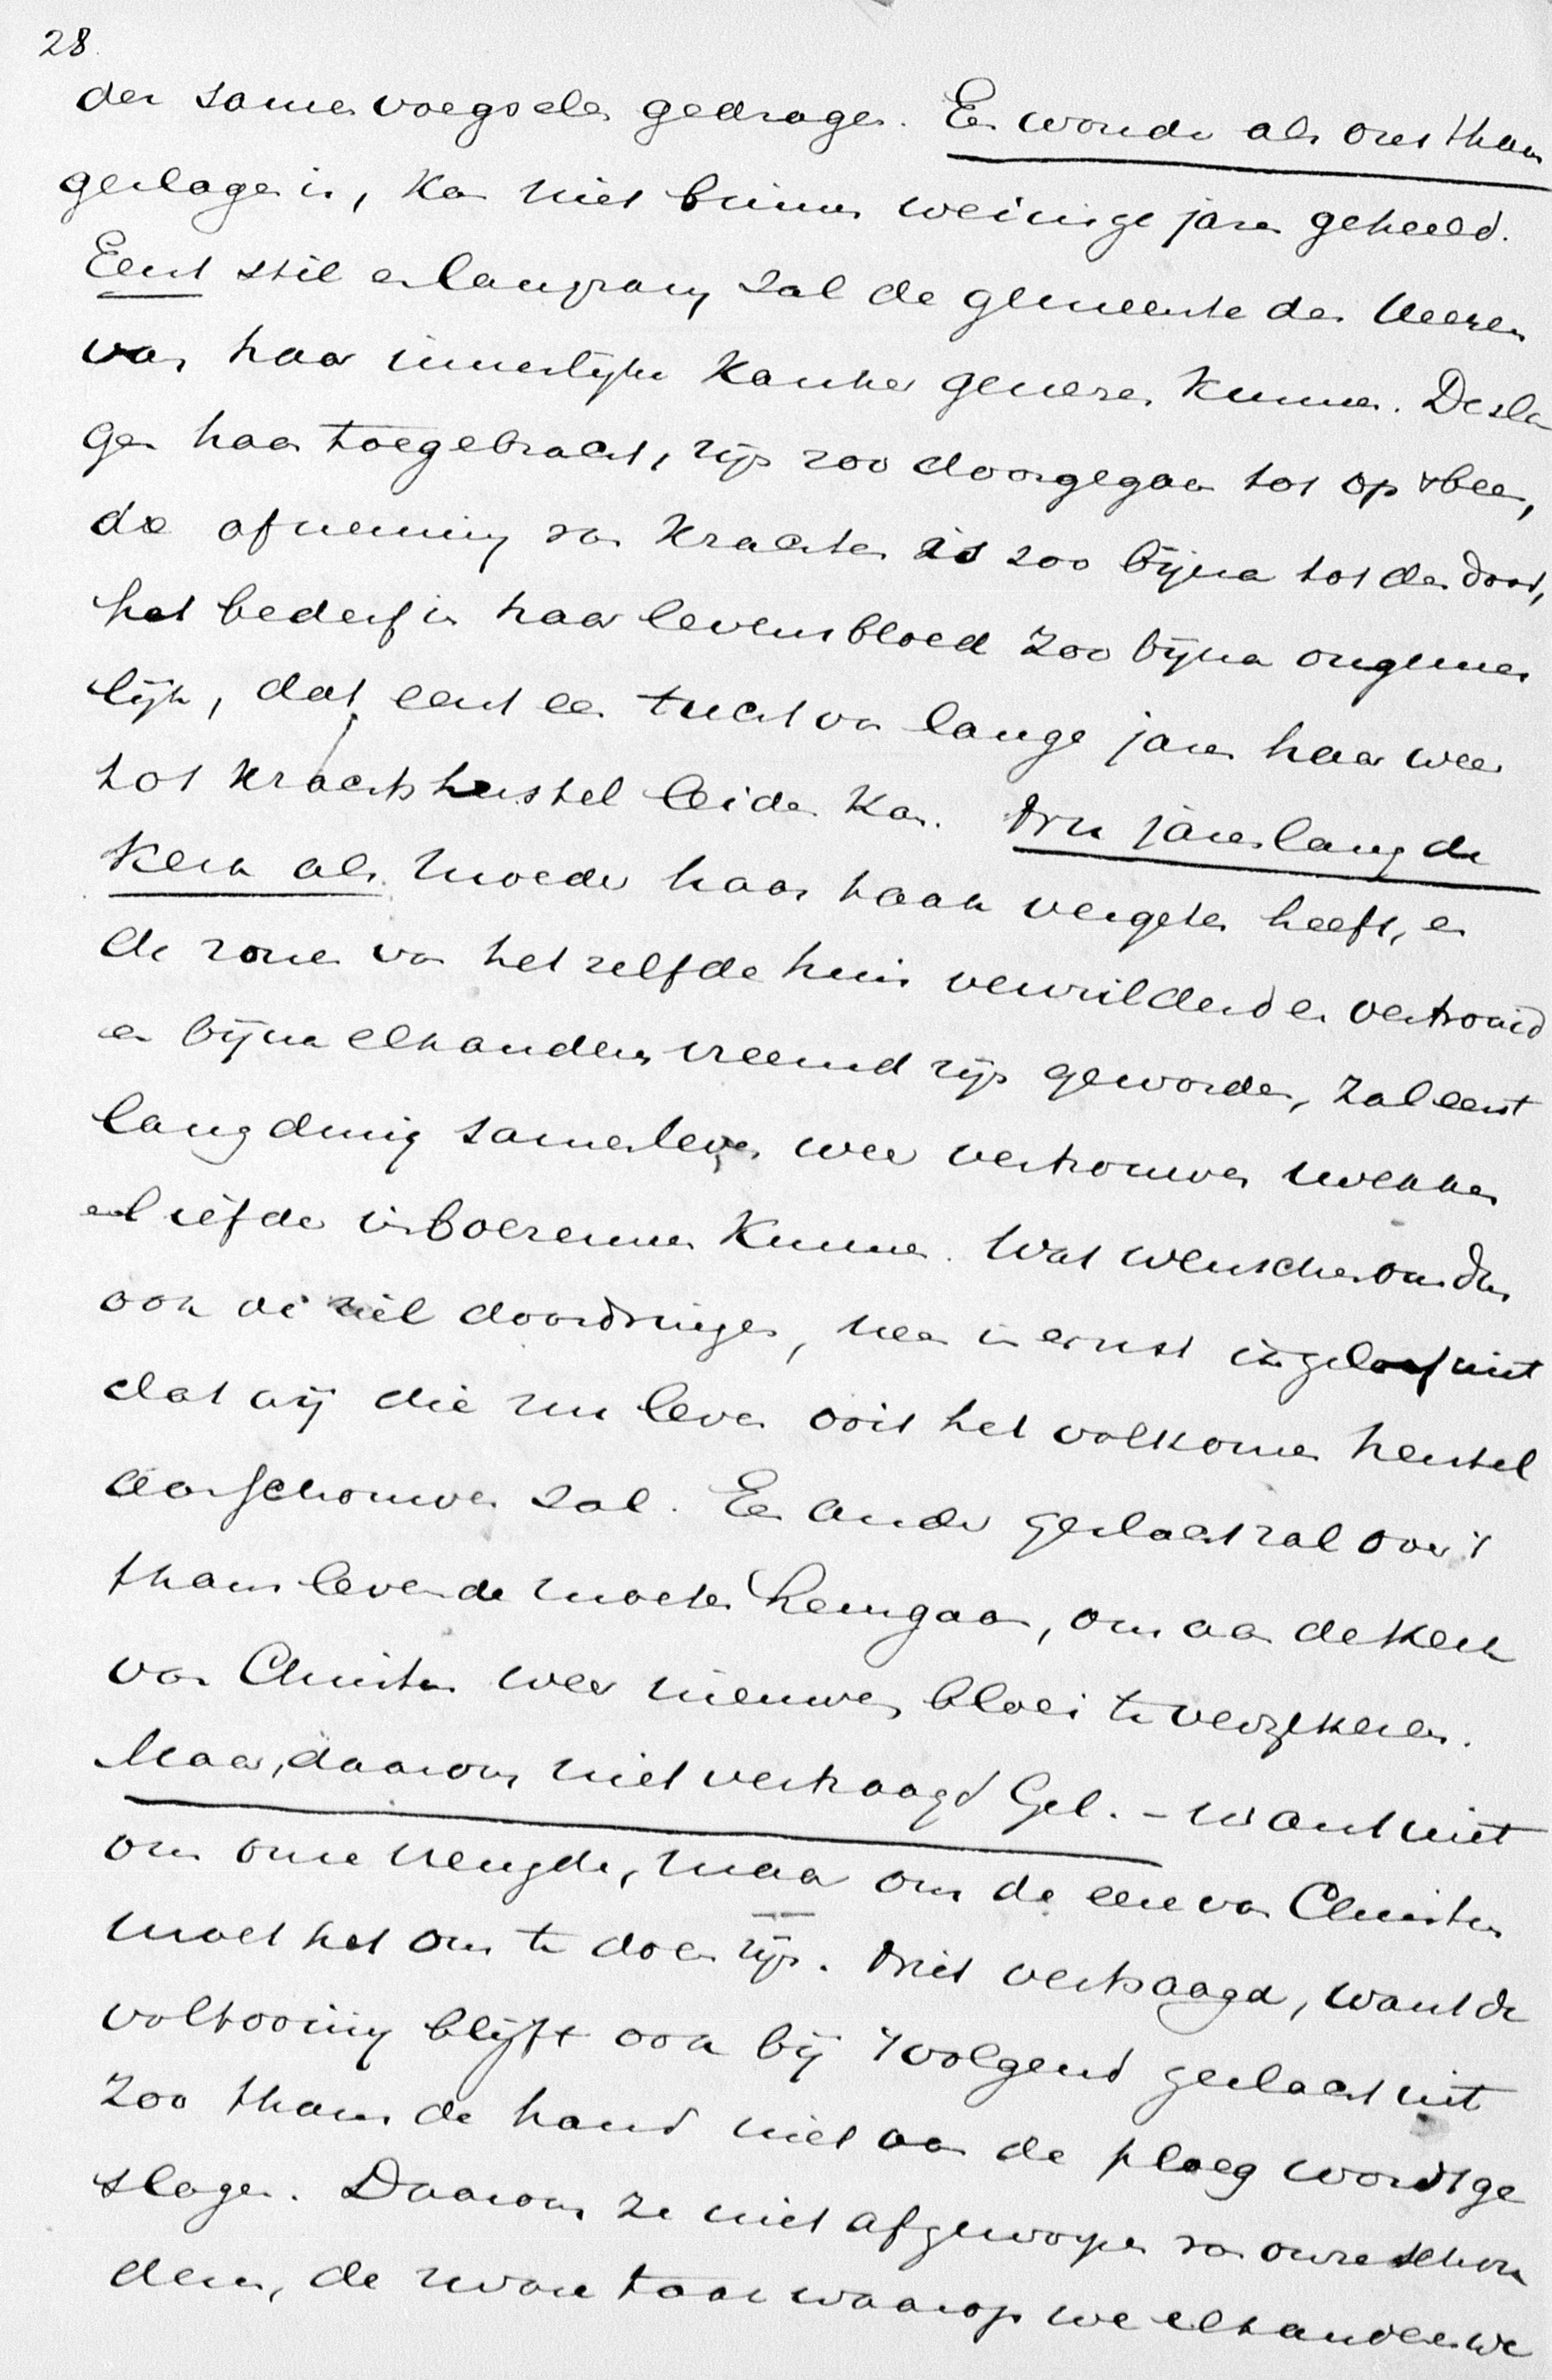 28.
der samenvoegselen gedragen. Een wonde als ons thans
geslagen is, kan niet binnen weinige jaren geheeld.
Eerst stil en langzaam zal de gemeente des Heeren
van haar innerlijke kanker genezen kunnen. De sla
gen haar toegebracht, zijn zoo doorgegaan tot op 't been,
de afneming van krachten is zoo bijna tot den dood,
het bederf in haar levensbloed zoo bijna ongenees
lijk, dat eerst een tucht van lange jaren haar weer
tot krachtsherstel leiden kan. Nu jarenlang de
Kerk als moeder haar taak vergeten heeft, en
de zonen van hetzelfde huis verwilderd en verstrooid
en bijna elkanderen vreemd zijn geworden, zal eerst
langdurig samenleven weer vertrouwen wekken
en liefde inboezemen kunnen. Wat wenschen ons dan
ook de ziel doordringen, neen in ernst ik geloof niet
dat wij die nu leven ooit het volkomen herstel
aanschouwen zal. Een ander geslacht zal over 't
thans levende moeten heengaan, om aan de Kerk
van Christus weer nieuwen bloei te verzekeren.
Maar, daarom niet vertraagd Gel. - want niet
om onze vreugde, maar om de eere van Christus
moet het ons te doen zijn. Niet vertraagd, want de
voltooiing blijft ook bij 't volgend geslacht uit
zoo thans de hand niet aan de ploeg wordt ge
slagen. Daarom ze niet afgeworpen van onze schou
deren, de zware taak waarop we elkanderen we